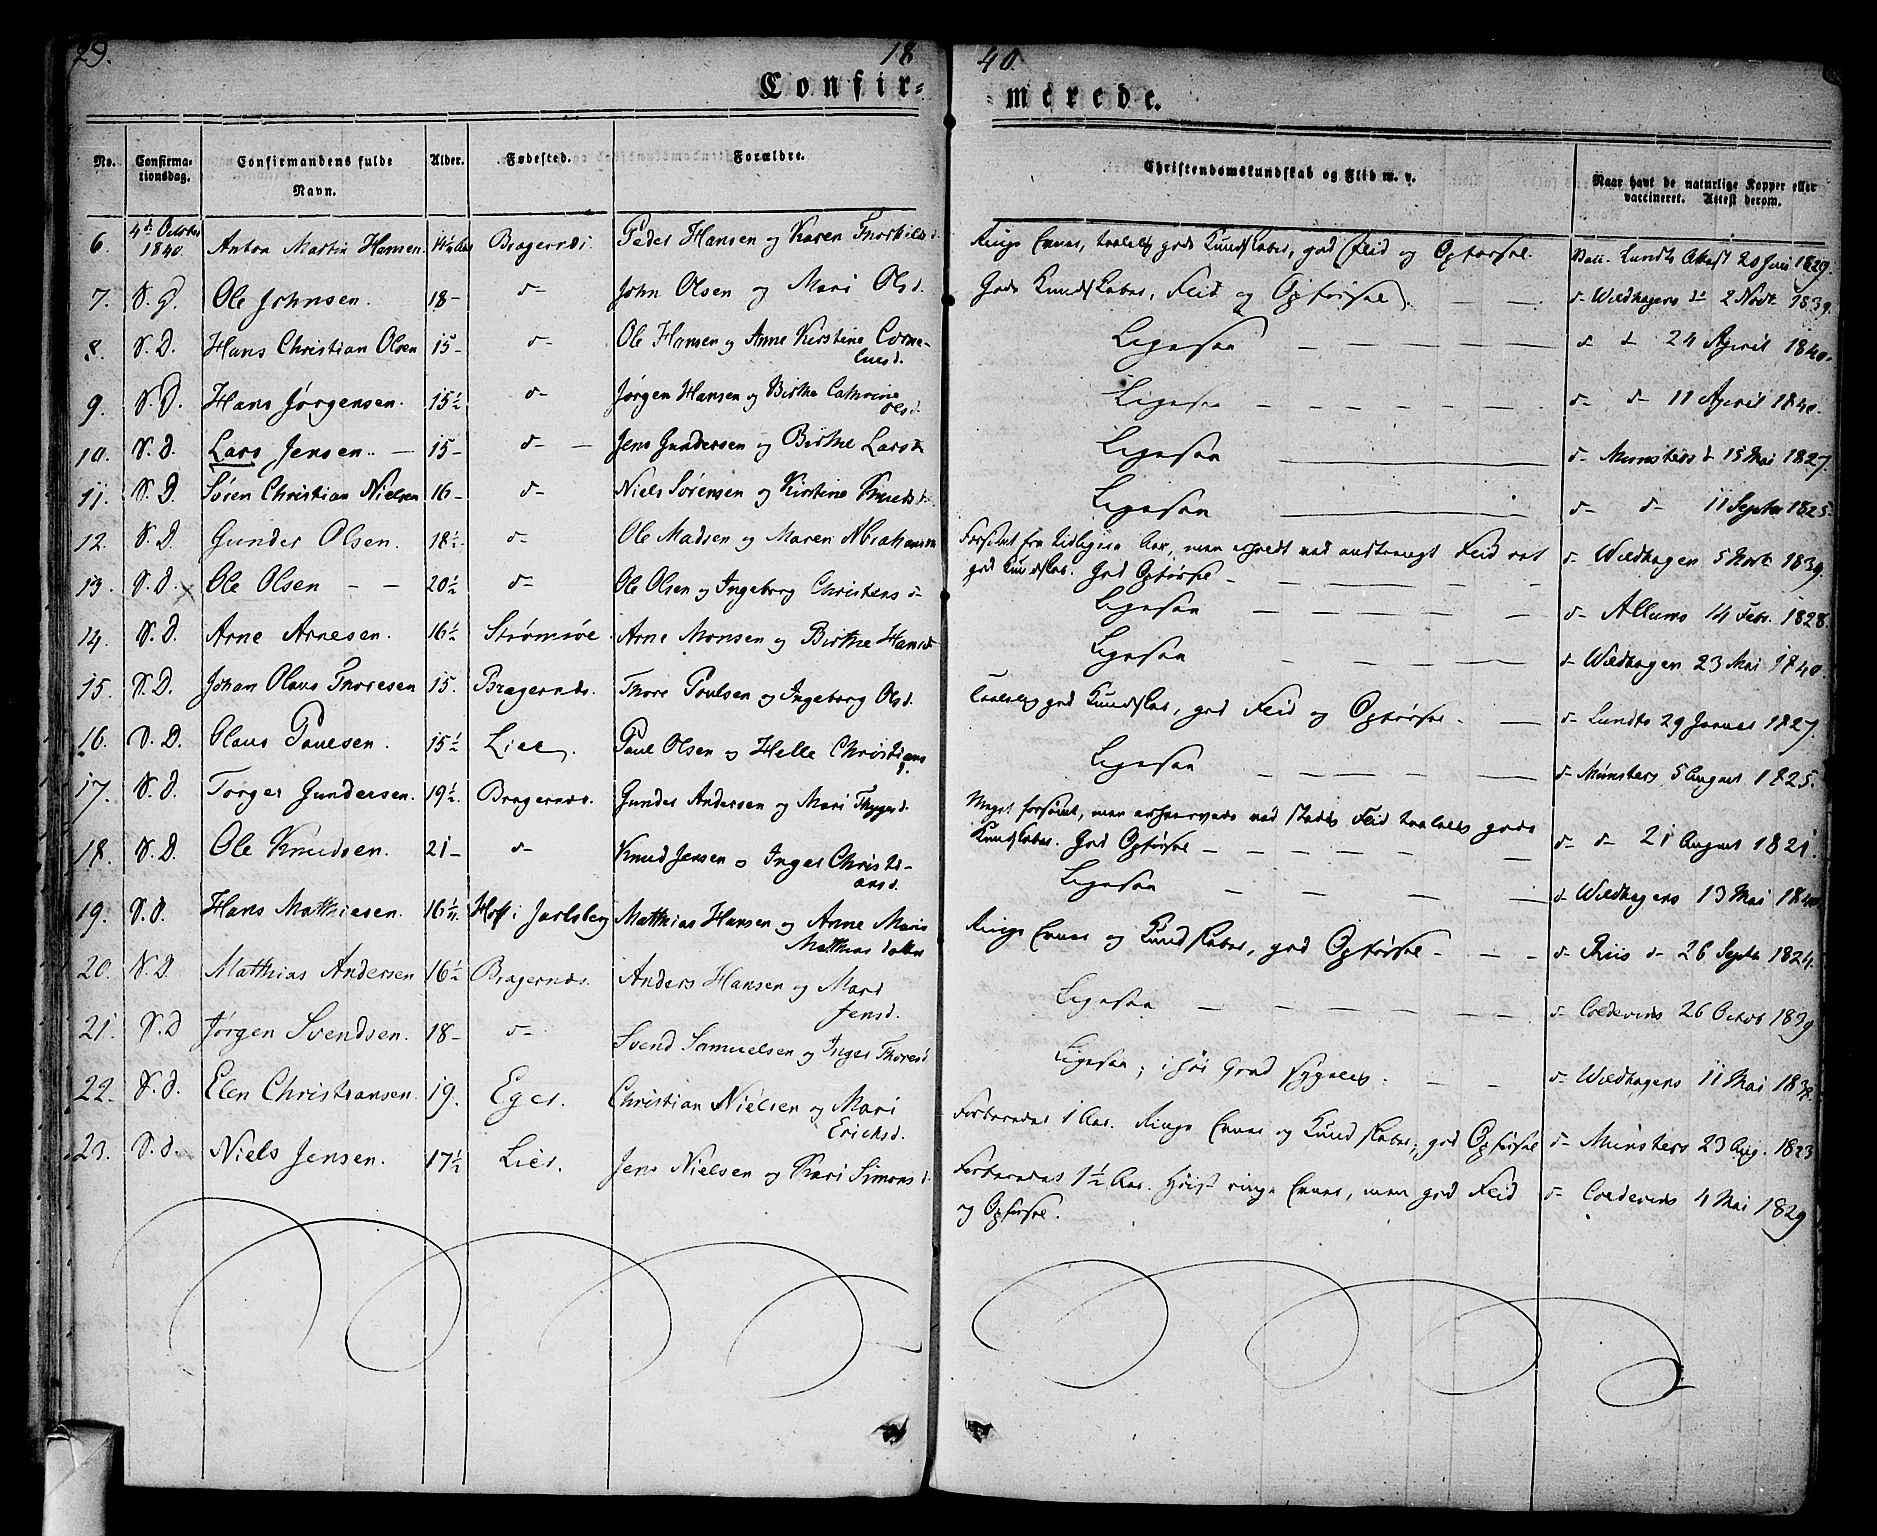 29. 18 40.
Confir= merede.
No. Confirma-tionsdag. Confirmandens fulde Navn. Alder. Fødested. Forældre. Christendomskundskab og Flid m. v. Naar havt de naturlige Kopper eller vaccineret. Attest derom.
6. 4d. October 1840. Anton Martin Hansen. Bragernæs. Peder Hansen og Karen Thorkilsd. Ringe Evner, taalelig gode Kundskaber, god Flid og Opførsel. Lundts Attest 20 Juni 1829.
7. S. D. Ole Johnsen. 18 - d- John Olsen og Mari Olsd. Gode Kundskaber, Flid og Opførsel. - - d- Wildhagens d- 2 Novb. 1839.
8. S. D. Hans Christian Olsen 15 - d- Ole Hansen og Anne Kirstine Corneliusd. Ligesaa d- d- 24 April 1840.
9. S. D. Hans Jørgensen. 15½ d- Jørgen Hansen og Birthe Cathrine Olsd. Ligesaa d- d- 11 April 1840.
10. S. D. Lars Jensen. - 15 - d- Jens Gundersen og Birthe Larsd. Ligesaa d- Münsters d- 15 Mai 1827.
11. S. D. Søren Christian Nielsen 16 - d- Niels Sørensen og Kirstine Knudsd. Ligesaa d- d- 11 Septbr 1825.
12. S. D. Gunder Olsen. 18½ d- Ole Madsen og Maren Abrahamsen Forsømt fra tidligere Aar, men erhvervet ved anstrengt Flid ret
god Kundskab. God Opførsel - d- Wildhagen 5 Novb. 1839.
13. S. D. Ole Olsen - - 20½ d- Ole Olsen og Ingeborg Christensd- Ligesaa d- Allums 14 Febr. 1828.
14. S. D. Arne Arnesen. 16½ Strømsøe. Arne Monsen og Birthe Hansd- Ligesaa d- Wildhagen 23 Mai 1840.
15. S. D. Johan Olaus Thoresen 15. Bragernæs. Thore Poulsen og Ingeborg Olsd. Taalelig god Kundskab, god Flid og Opførsel. - d- Lundts 29 Januar 1827.
16. S. D. Olaus Paulsen. 15½ Lier. Paul Olsen og Helle Christiansd. Ligesaa d- Münsters 5 August 1825.
17. S. D. Torger Gundersen. 19½. Bragernæs. Gunder Andersen og Mari Thygesd. Meget forsømt, men erhvervede ved stadig Flid taalelig gode
Kundskaber. God Opførsel - d- d- 21 August 1821.
18. S. D. Ole Knudsen. 21 - d- Knud Jensen og Inger Christiansd. Ligesaa d- Wildhagens 13 Mai 1840
19. S. D. Hans Mathiesen. 16½. Hof i Jarlsberg Matthias Hansen og Anne Marie Matthiasdatter Ringe Evner og Kundskaber, god Opførsel - - - d- Riis d- 26 Septbr 1824.
20. S. D. Matthias Andersen 16½ Bragernæs. Anders Hansen og Mari Jensd. Ligesaa d- Colderins 26 Octob 1839
21. S. D Jørgen Svendsen. 18 - d- Svend Samuelsen og Inger Thoresd Ligesaa; i høi Grad sygelig. - - d- Wildhagens 11 Mai 1838.
22. S. D. Elen Christiansen. 19. Eger. Christian Nielsen og Mari Ericksd. Forberedes 1 Aar. Ringe Evner og Kundskaber, god Opførsel d- Münsters 23 Aug. 1823
23. S. D. Niels Jensen. 17½ Lier. Jens Nielsen og Kari Simonsd. Forberedes 1½ Aar. Høist ringe Evner, men god Flid
og Opførsel. d- Colderins 4 Mai 1829